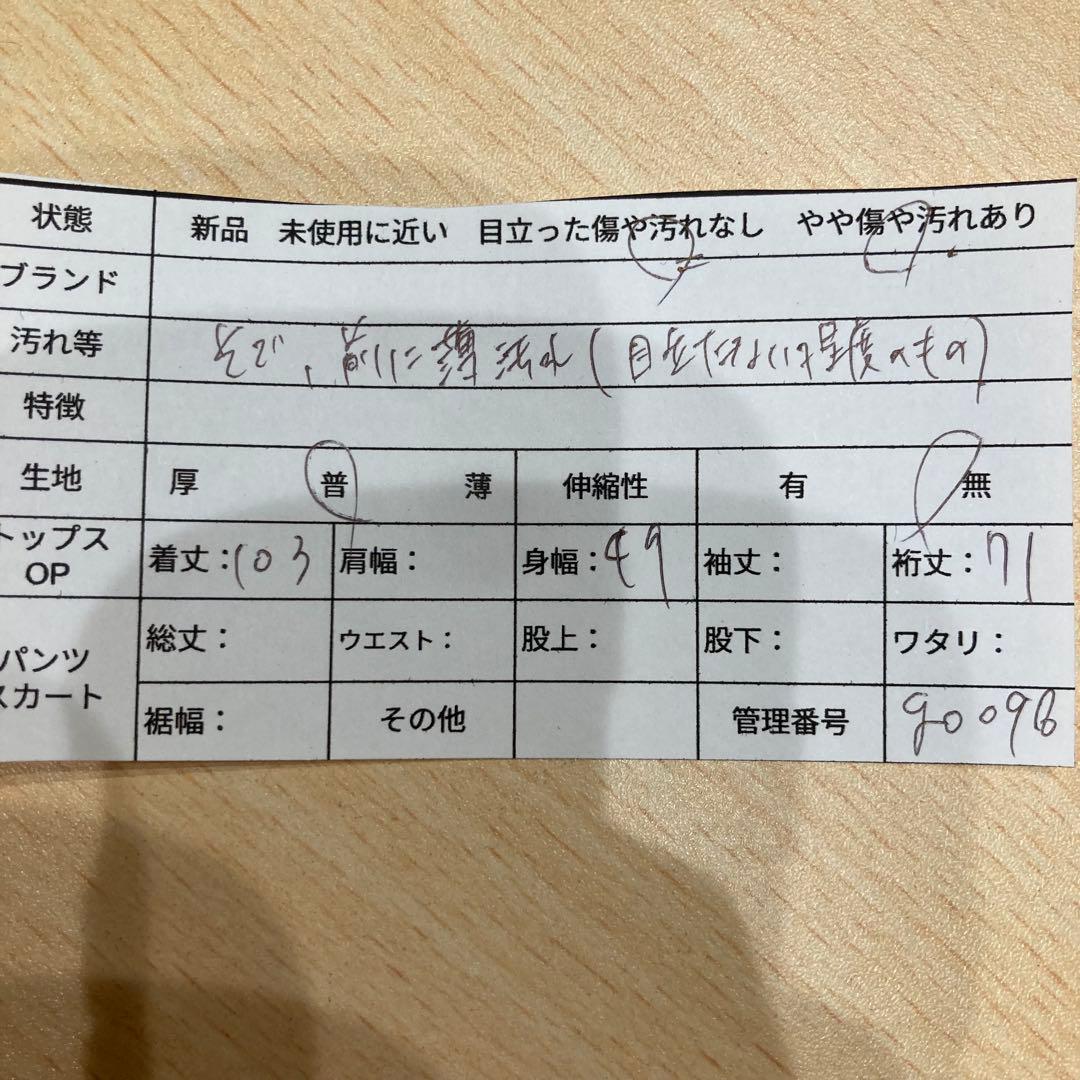 状態 新品 未使用に近い 目立った傷や汚れなし やや傷や汚れあり
ブランド
汚れ等 そで、前に薄汚れ(目立たない程度のもの)
特徴
生地 厚 普 薄 伸縮性 有 無
トップス OP 着丈:103 肩幅: 身幅:49 袖丈: 裄丈:71
パンツ スカート 総丈: ウエスト: 股上: 股下: ワタリ:
裾幅: その他 管理番号 90096